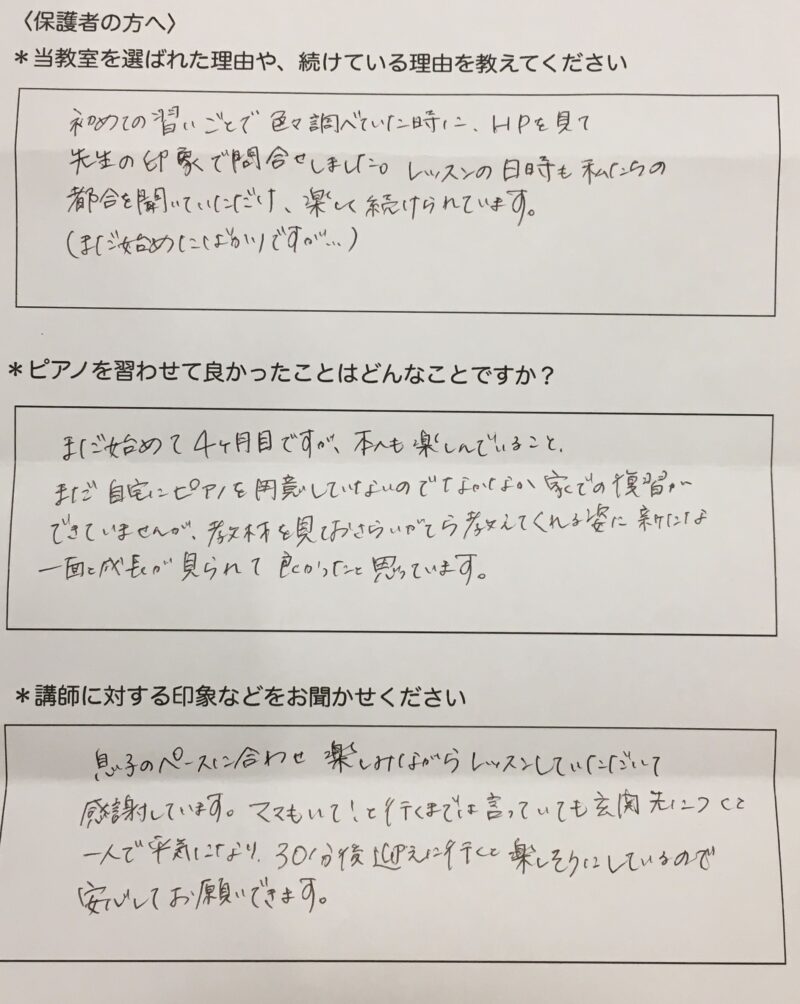 〈保護者の方へ〉
＊当教室を選ばれた理由や、続けている理由を教えてください
初めての習いごとで色々調べていた時に、HPを見て
先生の印象で問合せしました。レッスンの日時も私たちの
都合を聞いていただけ、楽しく続けられています。
(まだ始めたばかりですが…)
＊ピアノを習わせて良かったことはどんなことですか？
まだ始めて4ヶ月目ですが、本人も楽しんでいること、
まだ自宅にピアノを用意していないのでなかなか家での復習が
できていませんが、教材を見ておさらいがてら教えてくれる姿に新たな
一面と成長が見られて良かったと思っています。
＊講師に対する印象などをお聞かせください
息子のペースに合わせ楽しみながらレッスンしていただいて
感謝しています。ママもいて！と行くまでは言っていても玄関先につくと
一人で平気になり、30分後迎えに行くと楽しそうにしているので
安心してお願いできます。